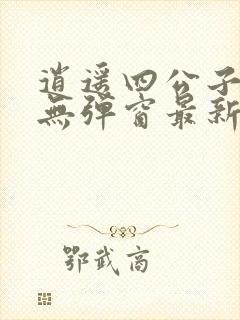 逍遥四公子
無彈窗最新
鄂武高